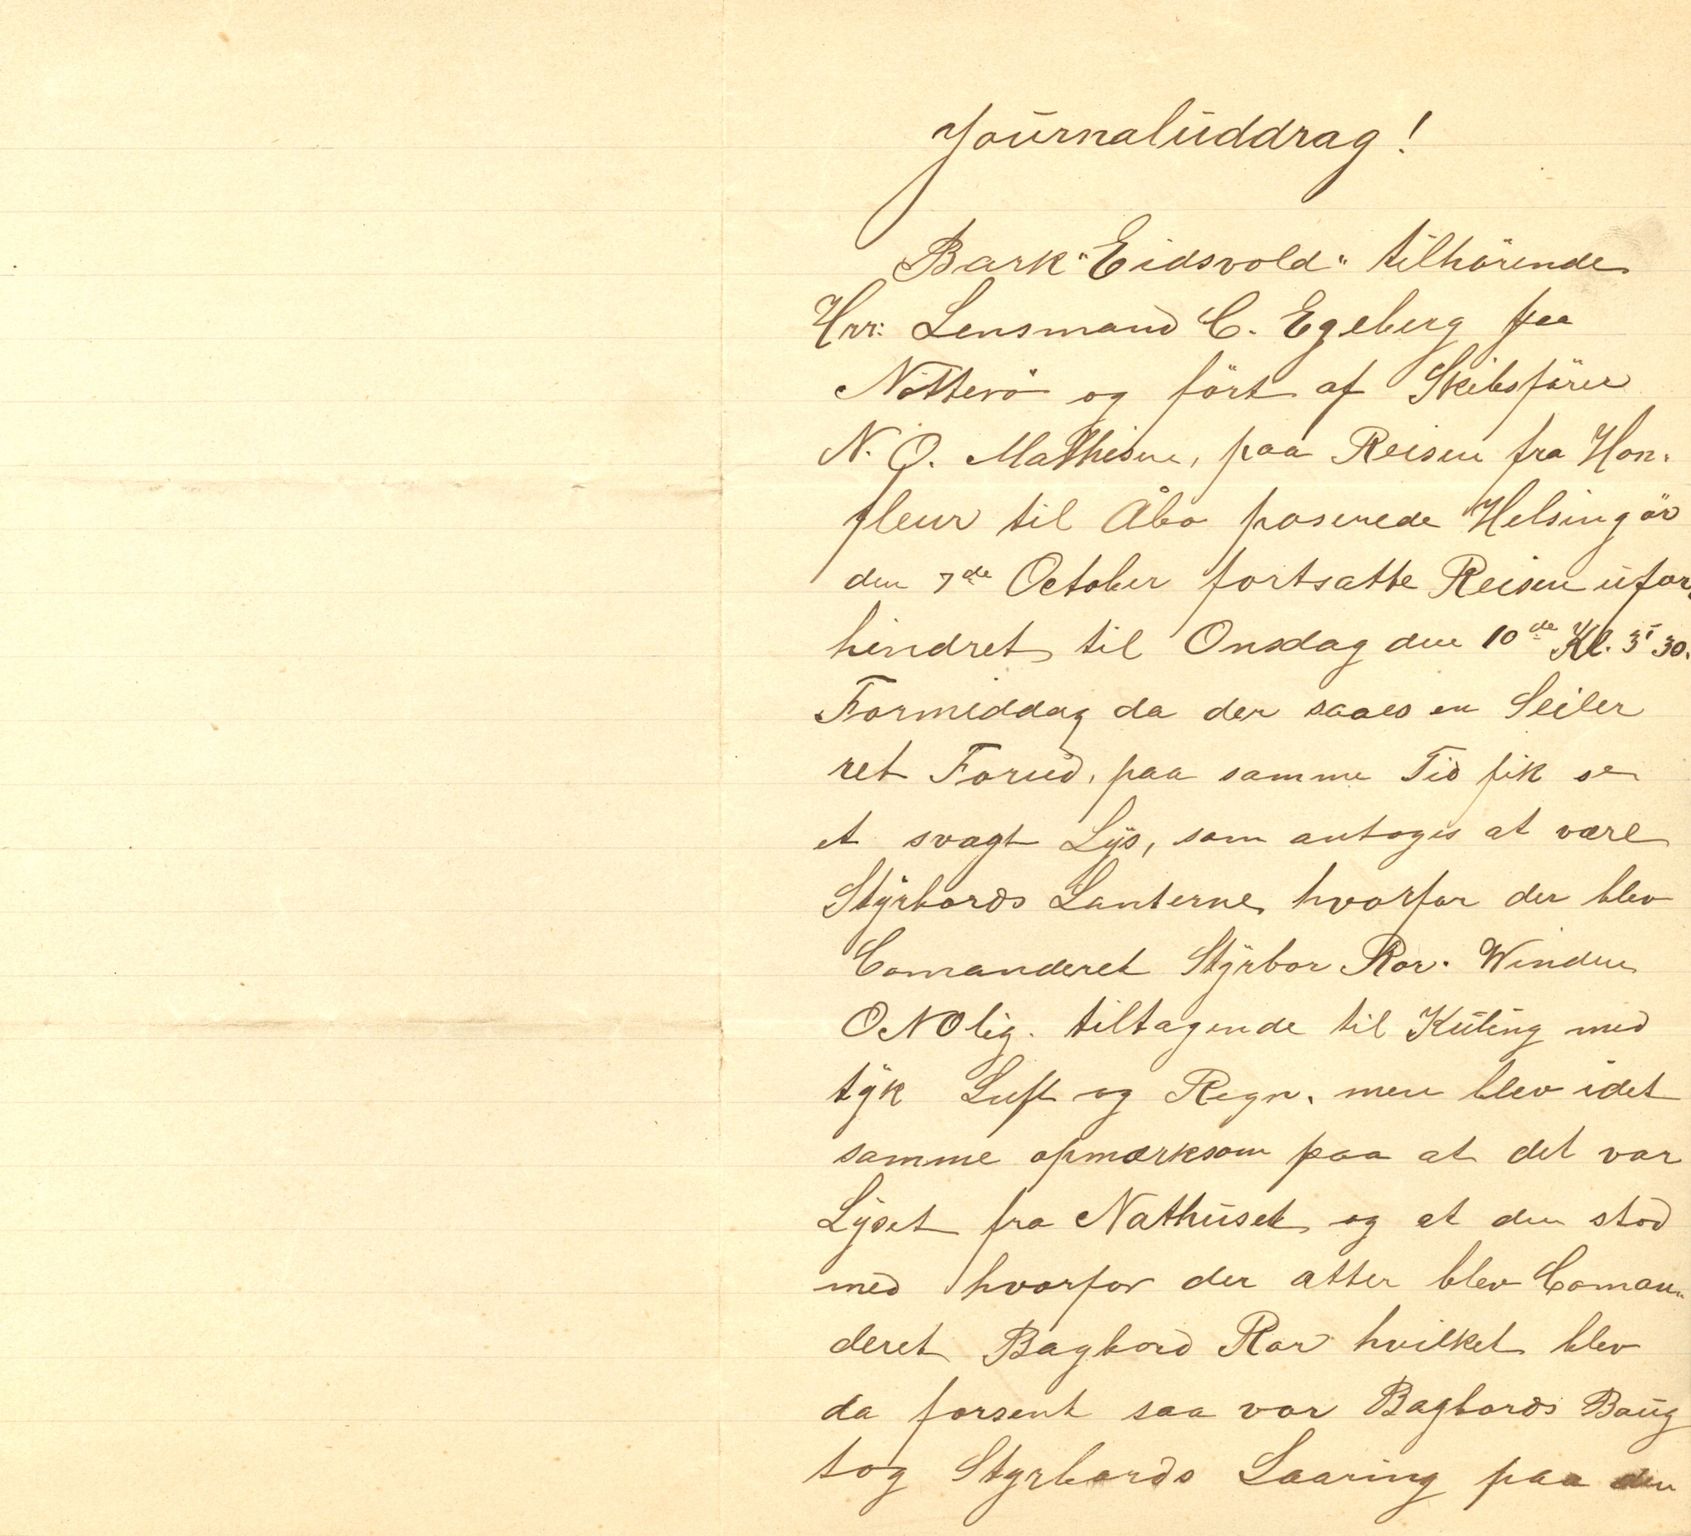 Journaluddrag!
Bark "Eidsvold" tilhörende
Hrr: Lensmand C. Egeberg paa
Nötterö og fört af Skibsförer
N. O. Mathisen, paa Reisen fra Hon-
fleur til Åbo paserede Helsingör
den 7de October fortsatte Reisen ufor-
hindret til Onsdag den 10de Kl. 3 30.
Formiddag da der saaes en Seiler
ret Forud, paa samme Tid fik se
et svagt Lys, som antoges at være
Styrbords Lanterne hvorfor der blev
Comanderet Styrbor Ror. Winden
ONOlig. tiltagende til Kuling med
tyk Luft og Regn. men blev idet
samme opmærksom paa at det var
Lyset fra Nathuset og at den stod
med hvorfor der atter blev Coman-
deret Bagbord Ror hvilket blev
da forsent saa vor Bagbords Boug
tog Styrbords Laaring paa den